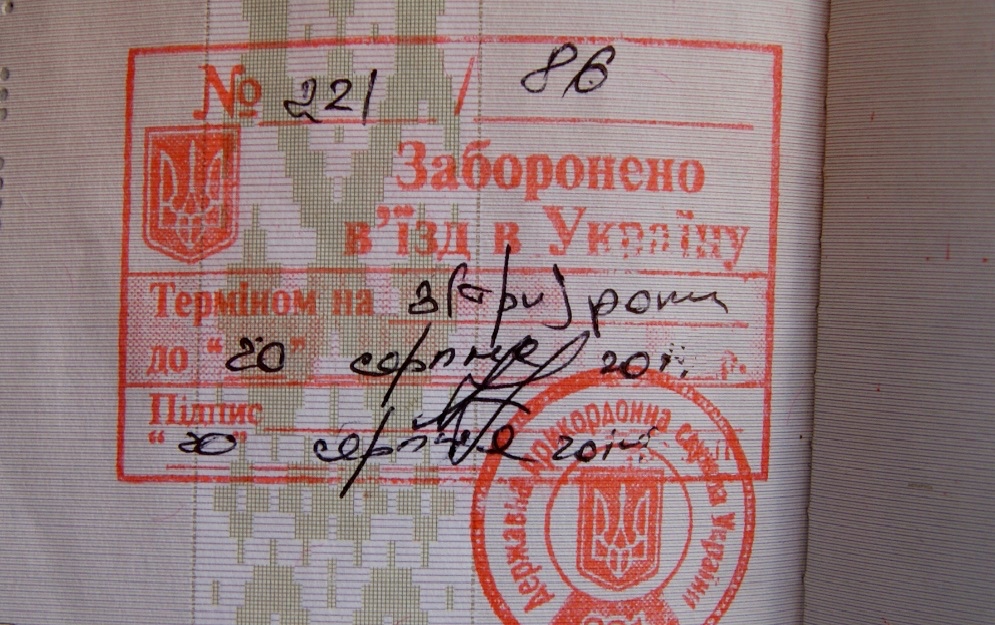 № 221 / 86
Заборонено
в'їзд в Україну
Терміном на 3 (три) роки
до "20" серпня р.
Підпис
"20" серпня
Державна прикордонна служба України